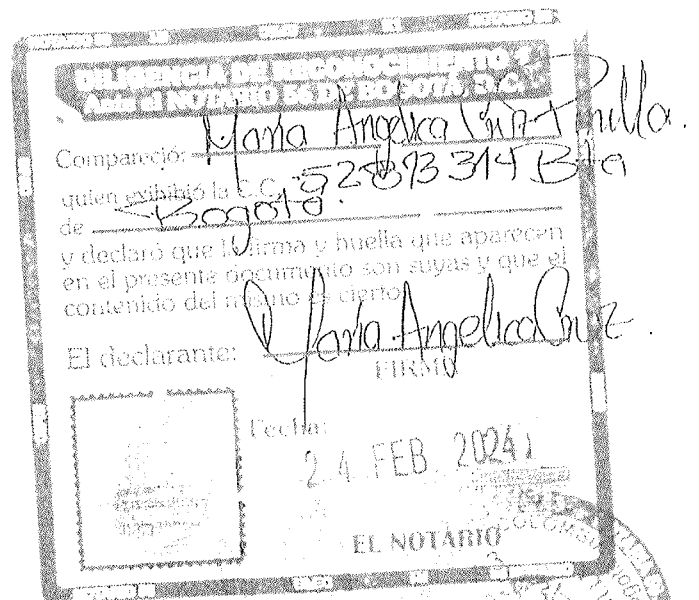 DILIGENCIA DE RECONOCIMIENTO
Ante el NOTARIO 56 DE BOGOTÁ, D.C.
Compareció: María Angelica Cruz Pinilla.
quien exhibió la C.C. Bta
de Bogotá.
y declaró que la firma y huella que aparecen
en el presente documento son suyas y que el
contenido del mismo es cierto
El declarante: María Angelica Cruz.
FIRMA
Fecha:
24 FEB. 2024
EL NOTARIO